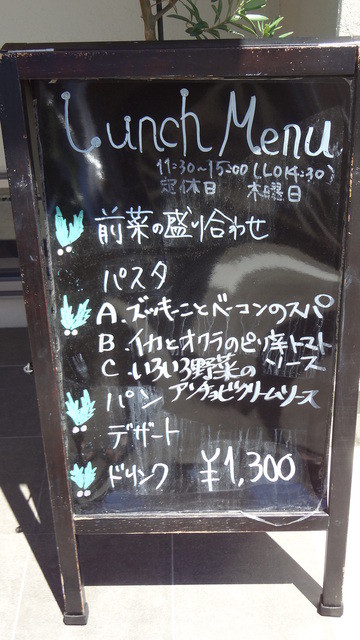 Lunch Menu
11:30~15:00(LO14:30)
定休日 木曜日
前菜の盛り合わせ
パスタ
A.ズッキーニとベーコンのスパ
B.イカとオクラのピリ辛トマトソース
C.いろいろ野菜のアンチョビクリームソース
パン
デザート
ドリンク ¥1,300